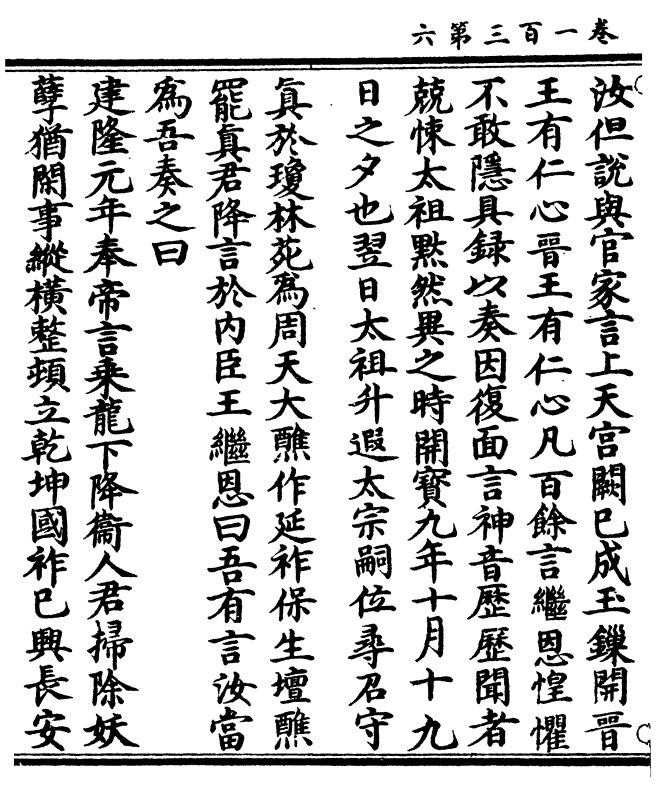 卷一百三第六
汝但說與官家言上天宮闕已成玉鏁開晉
王有仁心晉王有仁心凡百餘言繼恩惶懼
不敢隱具録以奏因復面言神音歷歷聞者
兢悚太祖黙然異之時開寳九年十月十九
日之夕也翌日太祖升遐太宗嗣位尋召守
真於瓊林苑為周天大醮作延祚保生壇醮
罷真君降言於内臣王繼恩曰吾有言汝當
為吾奏之曰
建隆元年奉帝言乗龍下降衞人君掃除妖
孽猶閑事縱横整頓立乾坤國祚已興長安